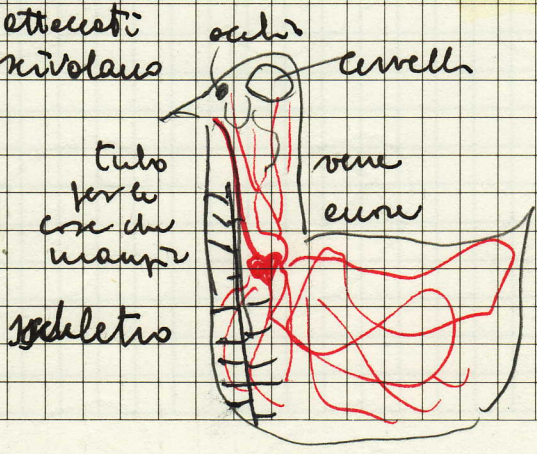 attaccati
scivolano
occhio
cervello
tubo
per le
cose che
mangia
vene
cuore
scheletro